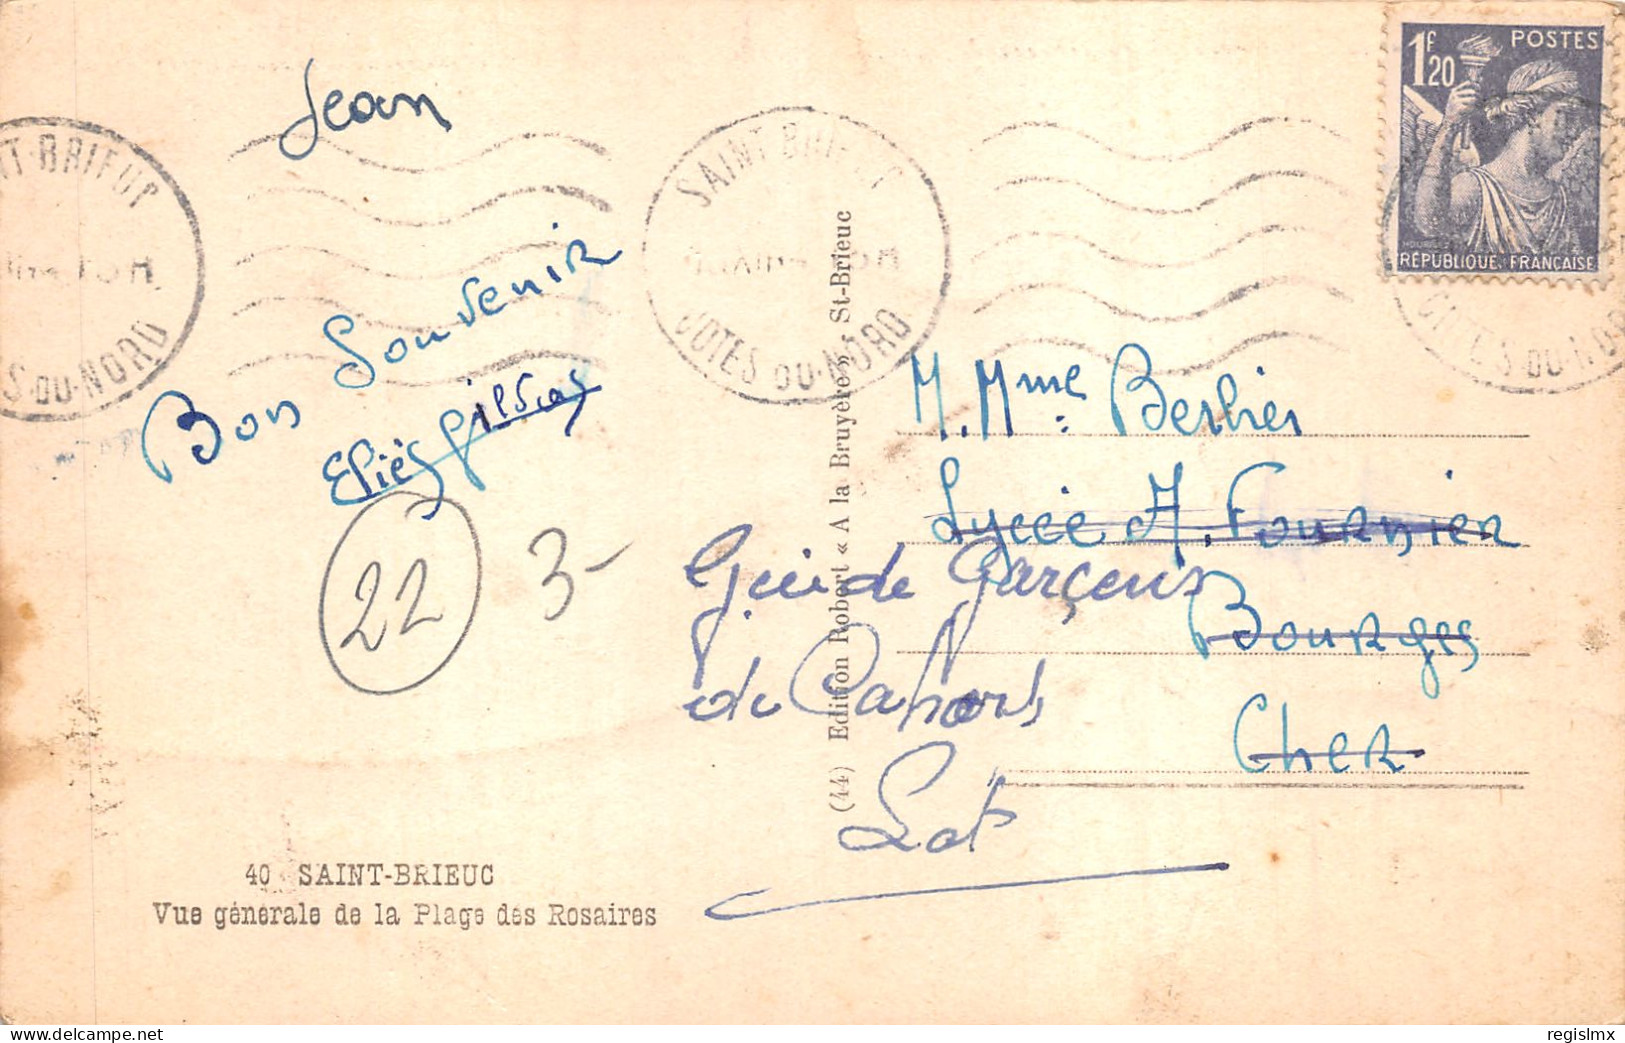 Jean
Bon Souvenir
22
3-
40 SAINT-BRIEUC
Vue générale de la Plage des Rosaires
SAINT-BRIEUC
COTES-DU-NORD
(44) Edition Robert « A la Bruyère », St-Brieuc
1F20
POSTES
REPUBLIQUE FRANÇAISE
M. Mme: Berlier
Lycée A. Fournier
Bourges
Cher
de Garçons
de Cahors
Lot
regislmx